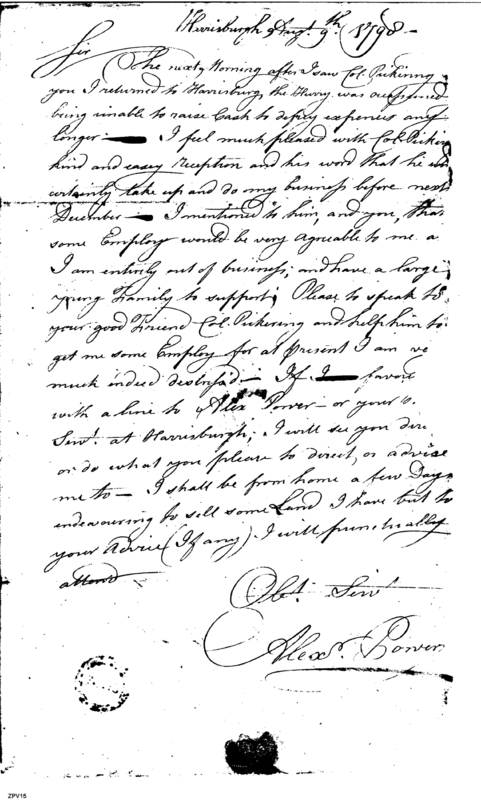 Harrisburgh Augt. 9th 1798 -
Sir
The next Morning after I saw Col. Pickering
you I returned to Harrisburg, the Hurry was occasioned
being unable to raise Cash to defray expences any
longer — I feel much pleased with Col. Pickering
kind and easey reception and his word that he
certainly take up and do my business before next
December — I mentioned to him, and you, that
some Employ would be very agreeable to me a
I am entirely out of business; and have a large
young Family to support; Please to speak to
your good Friend Col. Pickering and help him to
get me some Employ for at present I am ve
much indeed distress'd — If favor
with a line to Alex Power — or your
Servt. at Harrisburgh, I will see you
or do what you please to direct, or advise
me to — I shall be from home a few Days
endeavouring to sell some Land I have but to
your Advice (If any) I will punctually
attend
Obt. Servt
Alexr. Power
ZPV15